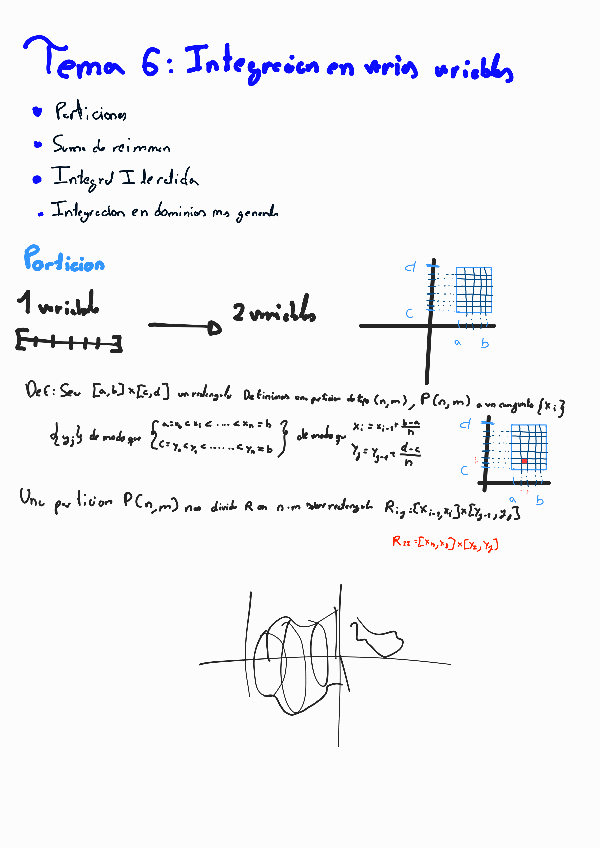 Tema 6: Integracion en varias variables
Particiones
Suma de reimman
Integral Iterotida
Integracion en dominios ms generals
Particion
1 variable
2 variables
d
c
a b
Def: Sea [a,b]×[c,d] un rectangulo Definimos un particion de tipo (n,m), P(n,m) a un conjunto {xi}
{yj} de modo que { a=x0<x1<...<xn=b } de modo que xi = xi-1 + b-a/n
c=y0<y1<......<yn=b yj = yj-1 + d-c/n
d
c
a b
Una particion P(n,m) nos divide R en n·m subrectangulo Rij=[xi-1,xi]×[yj-1,yj]